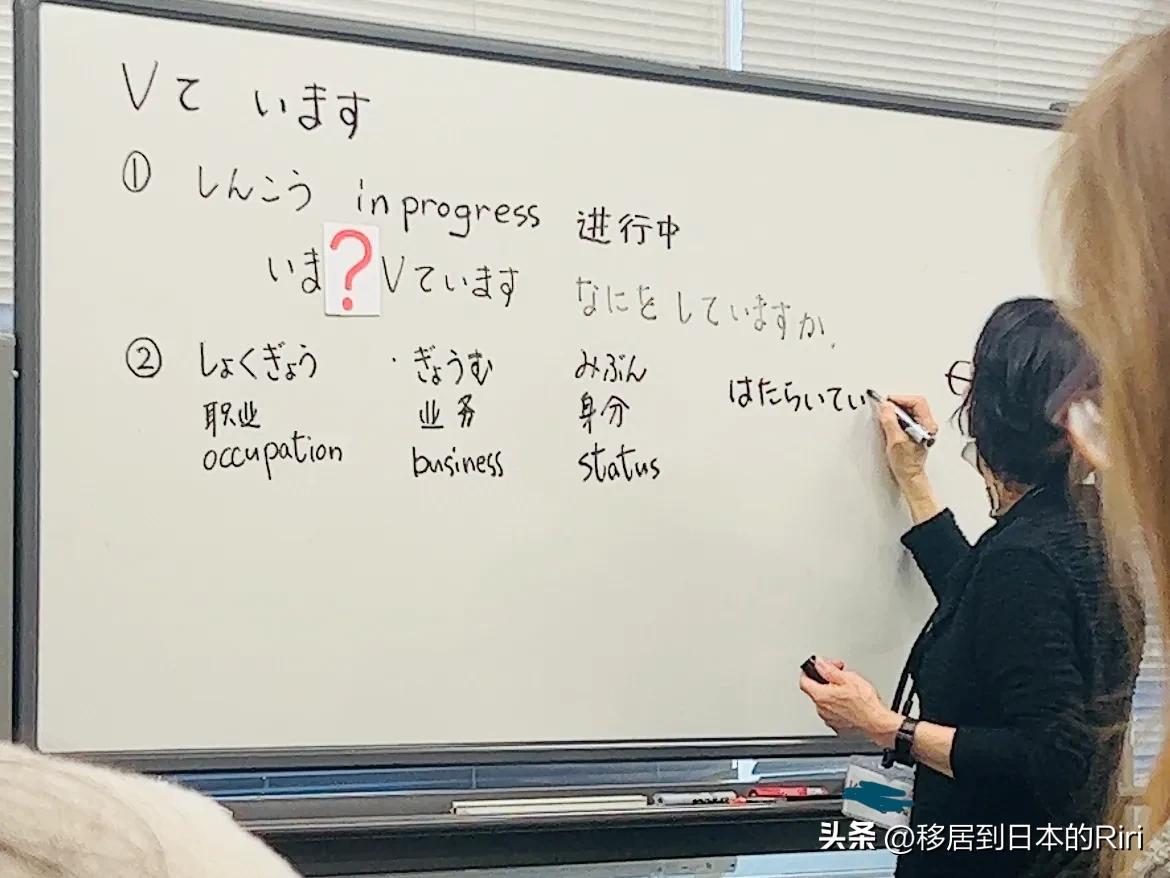 Vて います
① しんこう in progress 进行中
いま ? Vています なにを していますか。
② しょくぎょう ・ぎょうむ みぶん
职业 业务 身分 はたらいてい
occupation business status
头条 @移居到日本的Riri